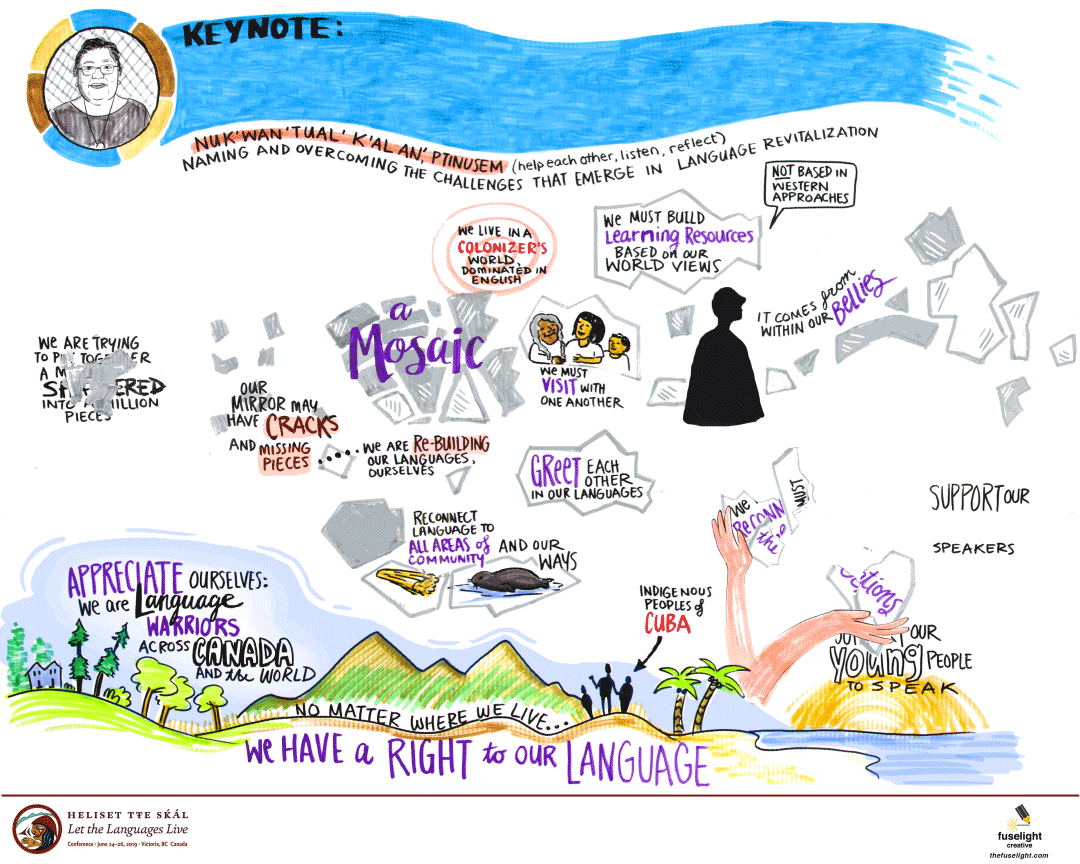 KEYNOTE:
NUK'WAN'TUAL' K'AL'AN', PTINUSEM (help each other, listen, reflect)
NAMING AND OVERCOMING THE CHALLENGES THAT EMERGE IN LANGUAGE REVITALIZATION
NOT BASED IN
WESTERN
APPROACHES
WE LIVE IN A
COLONIZER'S
WORLD,
DOMINATED IN
ENGLISH
WE MUST BUILD
Learning Resources
BASED on OUR
WORLD VIEWS
IT COMES from
WITHIN OUR BELLIES
WE ARE TRYING
TO
A
INTO
PIECES
a
Mosaic
WE MUST
VISIT WITH
ONE ANOTHER
OUR
MIRROR MAY
HAVE CRACKS
AND MISSING
PIECES
WE ARE RE-BUILDING
OUR LANGUAGES,
OURSELVES
GREET EACH
OTHER
IN OUR LANGUAGES
WE
MUST
the
SUPPORT OUR
SPEAKERS
RECONNECT
LANGUAGE TO
ALL AREAS of
COMMUNITY
AND OUR
WAYS
APPRECIATE OURSELVES:
We are Language
WARRIORS
ACROSS CANADA
AND the WORLD
INDIGENOUS
PEOPLES of
CUBA
OUR
YOUNG PEOPLE
TO SPEAK
NO MATTER WHERE WE LIVE...
We HAVE a RIGHT to OUR LANGUAGE
HELISET TŦE SḰÁL
Let the Languages Live
Conference · June 24–26, 2019 · Victoria, BC Canada
fuselight
creative
thefuselight.com